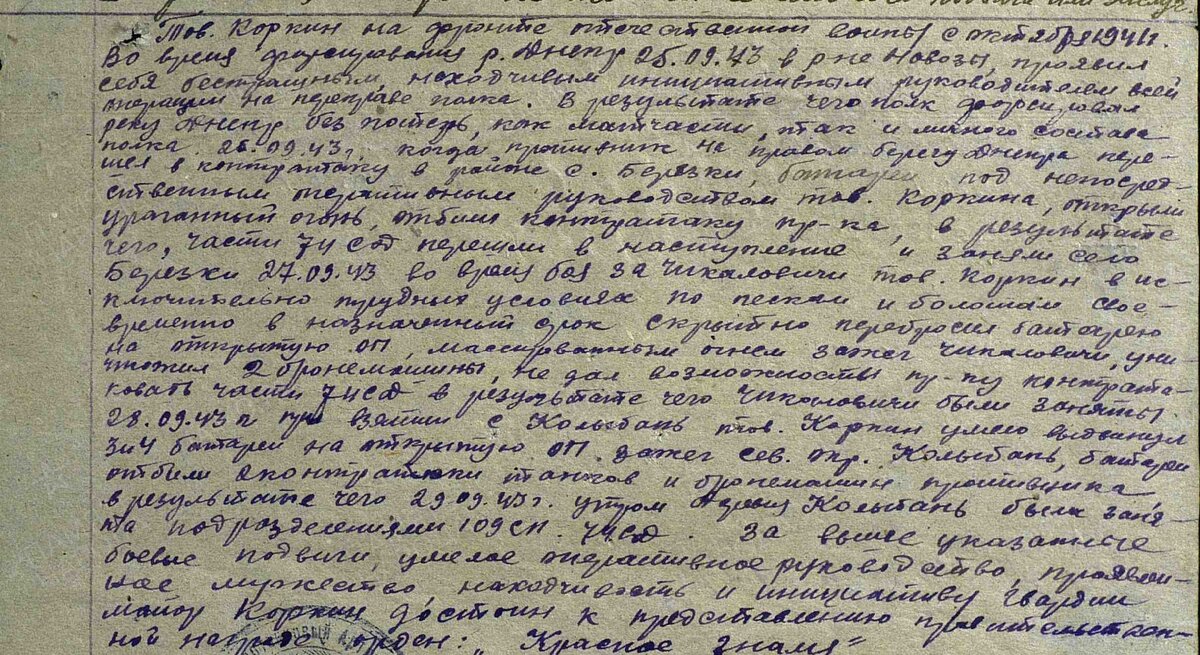 Тов. Коркин на фронте отечественной войны с октября 1941 г.
Во время форсирования р. Днепр 25.09.43 в р-не Новозы, проявил
себя бесстрашным, находчивым инициативным руководителем всей
операции на переправе полка. В результате чего полк форсировал
реку Днепр без потерь, как матчасти, так и личного состава
полка. 26.09.43 г. когда противник на правом берегу Днепра пере-
шел в контратаку в районе с. Березки, батареи под непосред-
ственным оперативным руководством тов. Коркина, открыли
ураганный огонь, отбили контратаку пр-ка, в результате
чего, части 74 сд перешли в наступление и заняли село
Березки 27.09.43 во время боя за Чикаловичи тов. Коркин в ис-
ключительно трудных условиях по пескам и болотам свое-
временно в назначенный срок скрытно перебросил батарею
на открытую ОП, массированным огнем зажег Чикаловичи, уни-
чтожил 2 бронемашины, не дал возможности пр-ку контрата-
ковать части 74 сд в результате чего Чикаловичи были заняты.
28.09.43 г. при взятии с Колыбань тов. Коркин умело выдвинул
3 и 4 батареи на открытую ОП. зажег сев. окр. Колыбань, батареи
отбили 2 контратаки танков и бронемашин противника
в результате чего 29.09.43 г. утром Колыбань была заня-
та подразделениями 109 сп. 74 сд. За выше указанные
боевые подвиги, умелое оперативное руководство, проявлен-
ное мужество находчивость и инициативу гвардии
майор Коркин достоин к представлению правительствен-
ной награде орден: „Красное знамя"